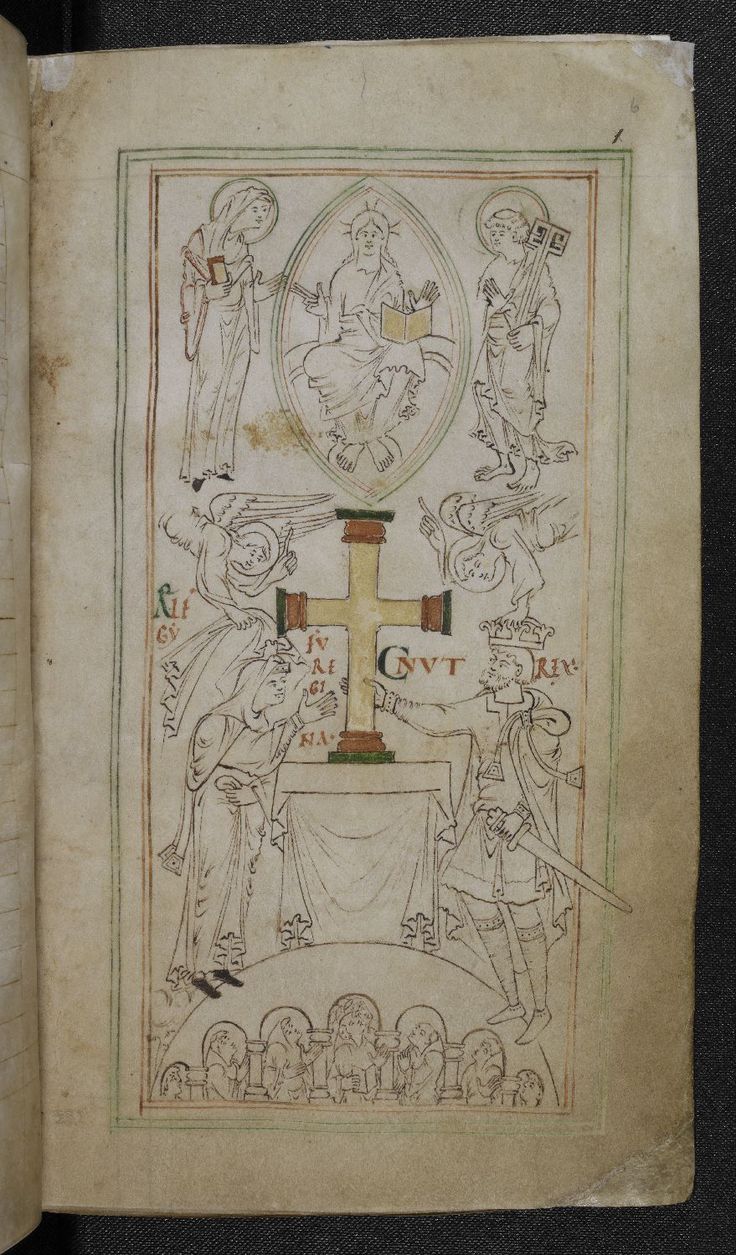 6
1
ÆLF
GẎ
FU
RE
GI
NA·
CNVT REX·